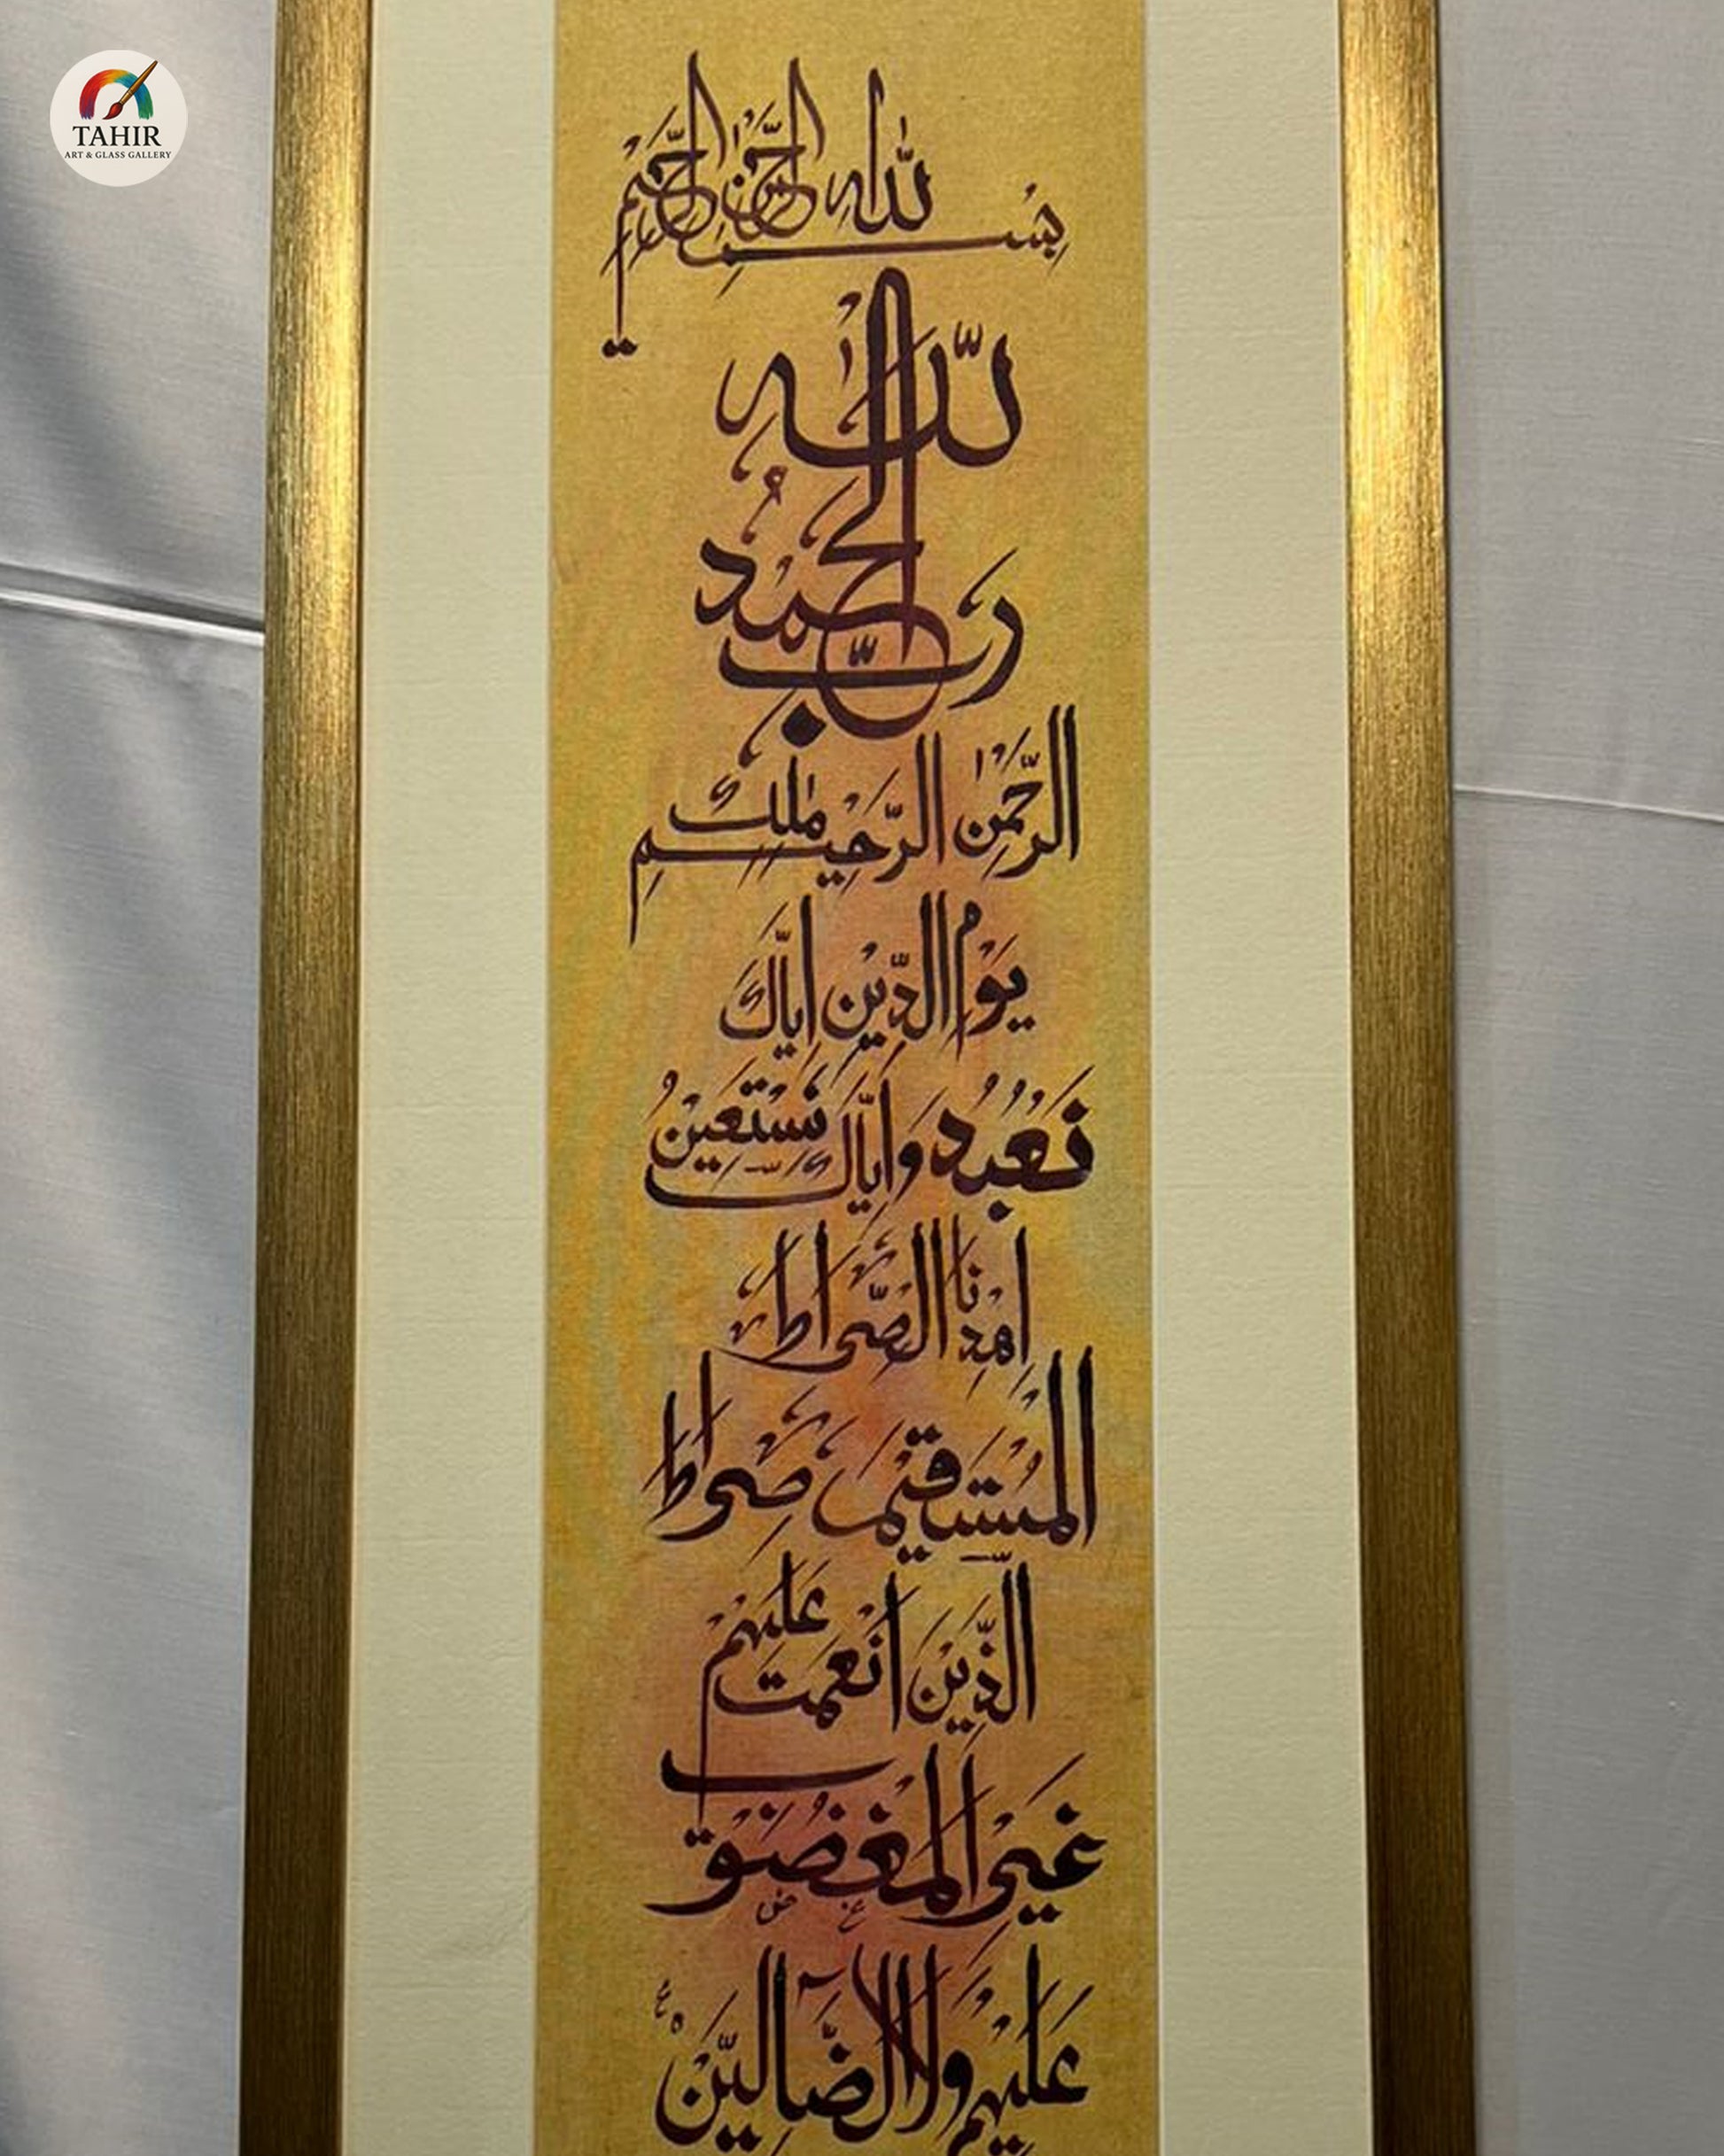 TAHIR
ART & GLASS GALLERY
بِسْمِ اللّٰهِ الرَّحْمٰنِ الرَّحِيْمِ
اَلْحَمْدُ لِلّٰهِ رَبِّ
الرَّحْمٰنِ الرَّحِيْمِ مٰلِكِ
يَوْمِ الدِّيْنِ اِيَّاكَ
نَعْبُدُ وَاِيَّاكَ نَسْتَعِيْنُ
اِهْدِنَا الصِّرَاطَ
الْمُسْتَقِيْمَ صِرَاطَ
الَّذِيْنَ اَنْعَمْتَ عَلَيْهِمْ
غَيْرِ الْمَغْضُوْبِ
عَلَيْهِمْ وَلَا الضَّآلِّيْنَ